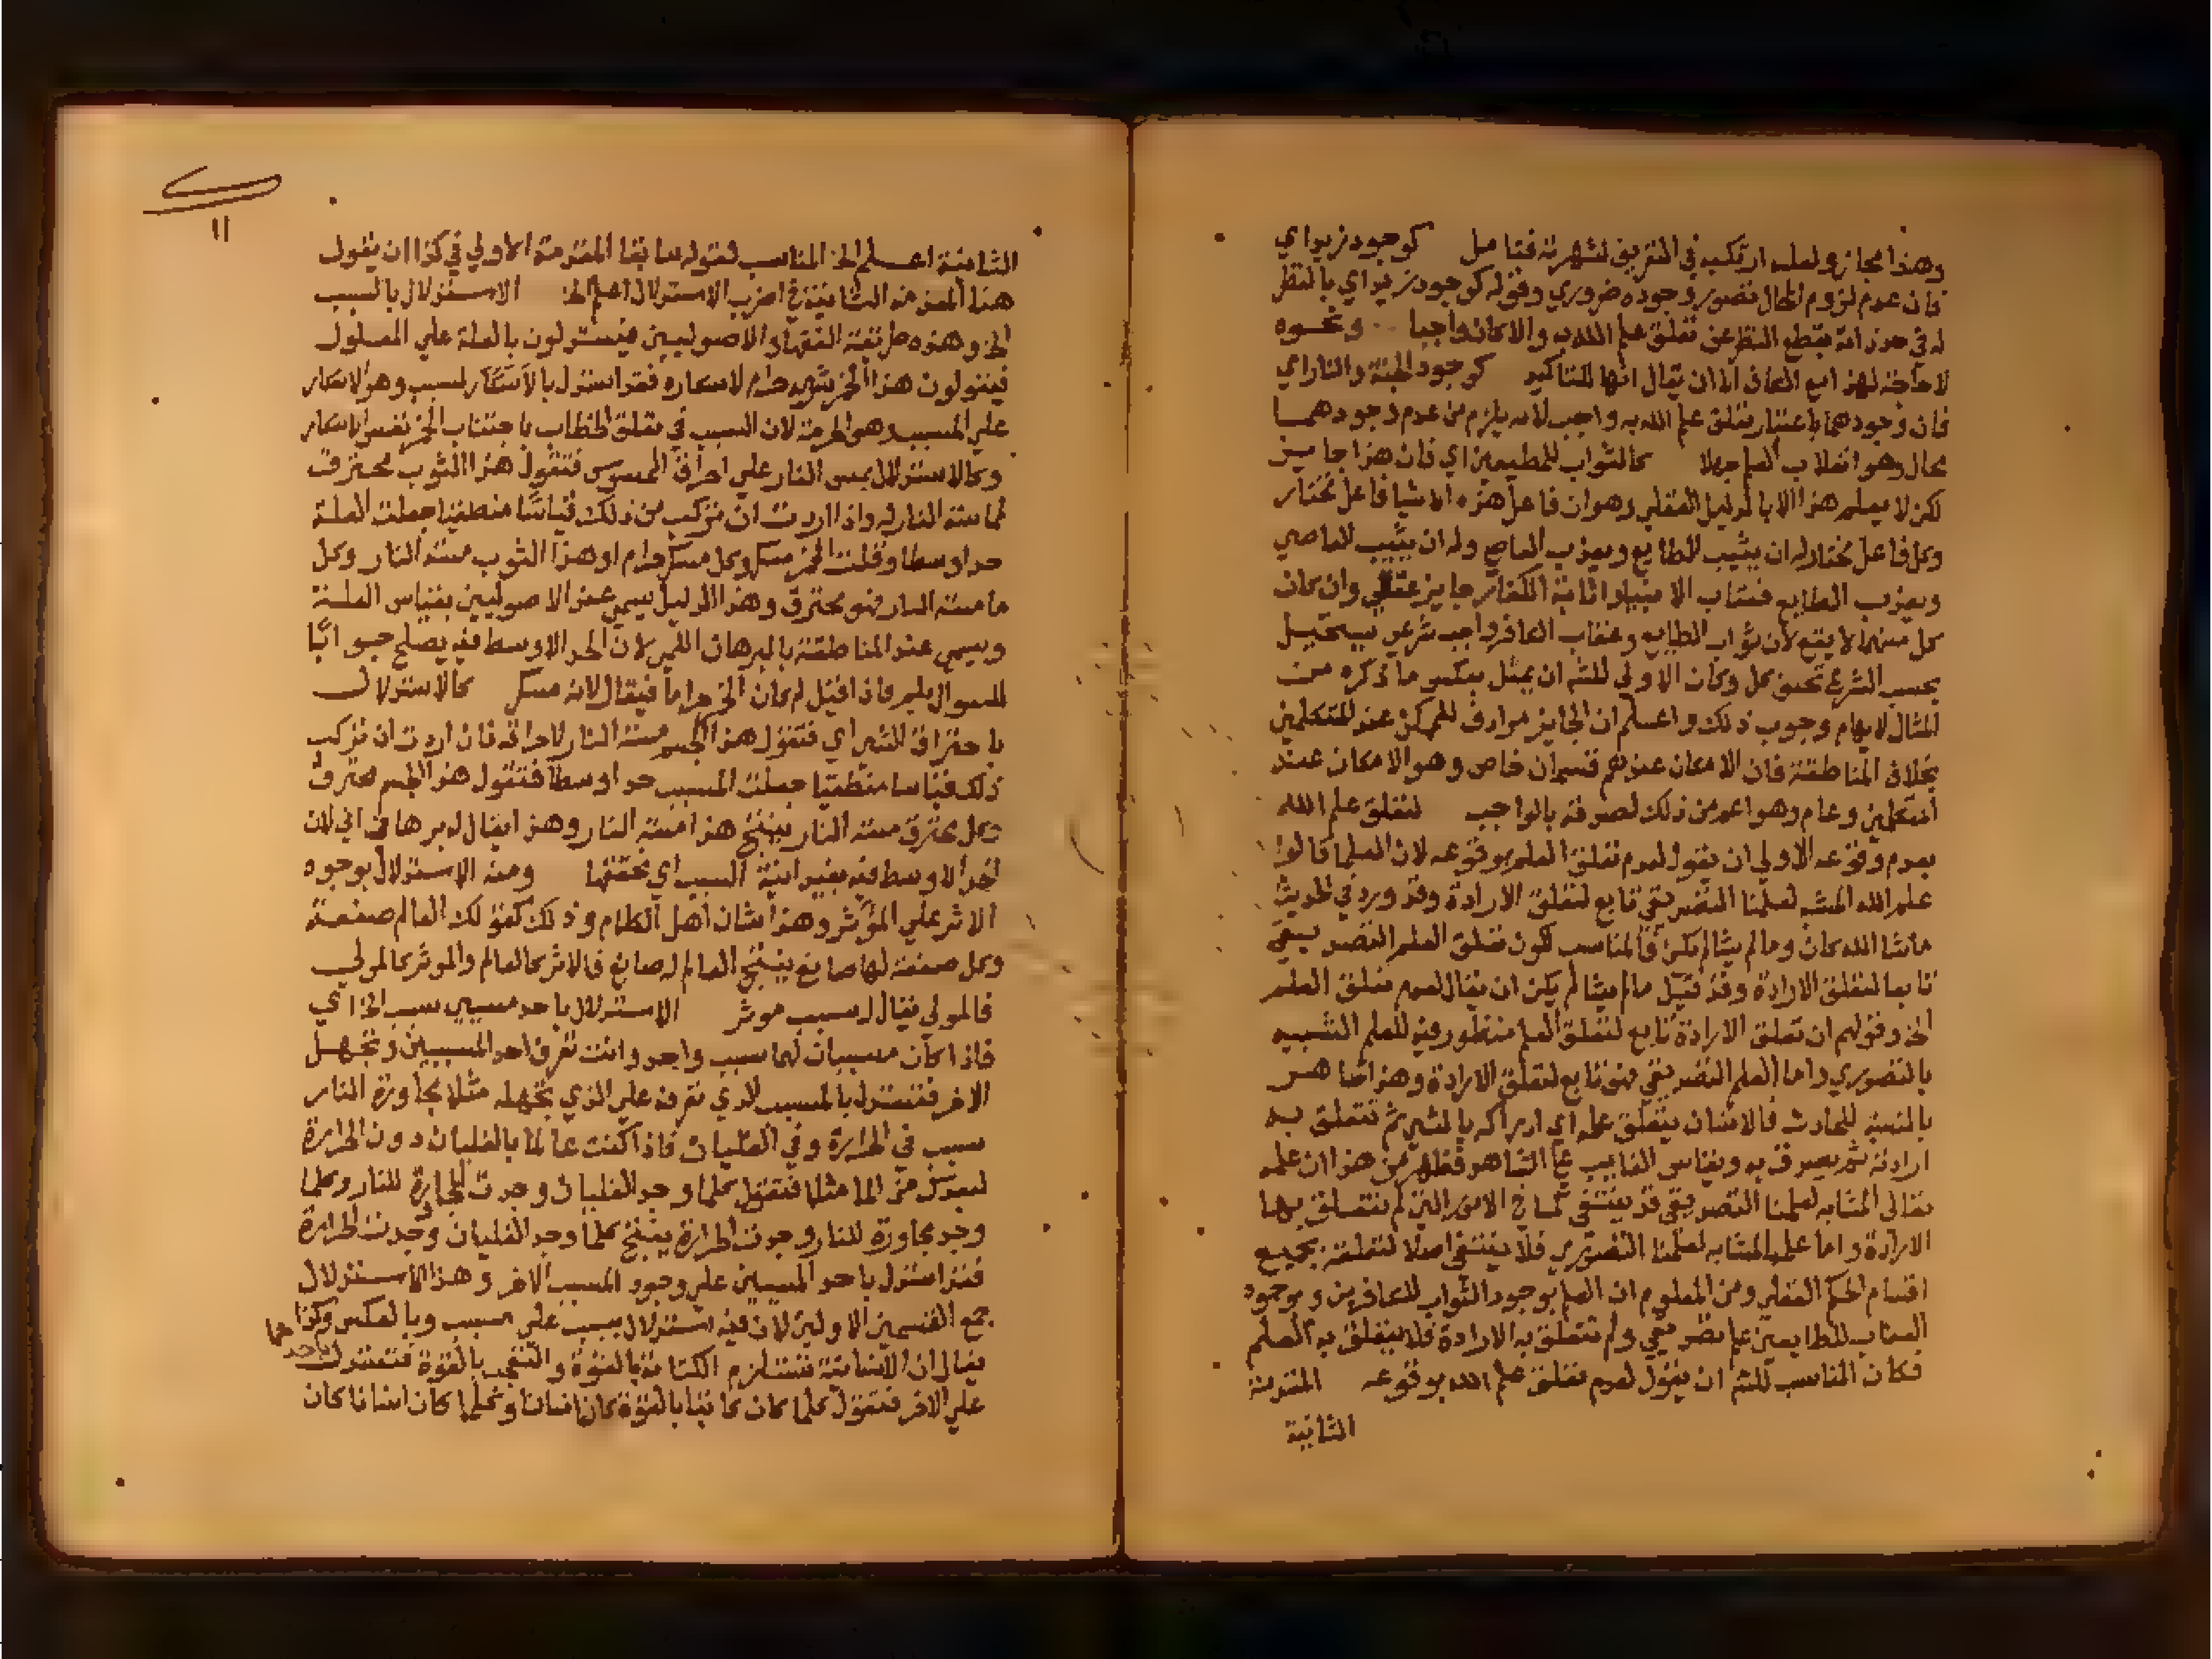 وهذا مجاز ولعله ارتكبه في التعريف لشهرته فتامل كوجود زيد اي
فان عدم لزوم المحال تصور وجوده ضروري وقوله كوجود زيد اي بالنظر
له في حد ذاته بقطع النظر عن تعلق علم الله به والا كان واجبا ونحوه
لا حاجة لهذا مع الكاف الا ان يقال انها للتاكيد كوجود الجنة والنار اي
فان وجودهما باعتبار تعلق علم الله به واجب لانه يلزم من عدم وجودهما
محال وهو انقلاب العلم جهلا كالثواب للمطيعين اي فان هذا جايز
لكن لا يعلم هذا الا بالدليل العقلي وهو ان فاعل هذه الاشيا فاعل مختار
وكل فاعل مختار له ان يثيب الطايع ويعذب العاصي وله ان يثيب العاصي
ويعذب الطايع فعقاب الانبيا واثابة الكفار جايز عقلي وان كان
كل منهما لا يقع لان ثواب الطايع وعقاب الكافر واجب شرعي فيستحيل
بحسب الشرع تخلف كل وكان الاولى للشه ان يمثل بعكس ما ذكره من
المثال لايهام وجوب ذلك واعلم ان الجايز مرادف للممكن عند المتكلمين
بخلاف المناطقة فان الامكان عندهم قسمان خاص وهو الامكان عند
المتكلمين وعام وهو اعم من ذلك لصدقه بالواجب لتعلق علم الله
بعدم وقوعه الاولي ان يقول لعدم تعلق العلم بوقوعه لان العلما قالوا
علم الله المشبه لعلمنا التصديقي تابع لتعلق الارادة وقد ورد في الحديث
ما شا الله كان وما لم يشا لم يكن فالمناسب لكون تعلق العلم التصديقي
تابعا لتعلق الارادة وقد قيل ما لم يشا لم يكن ان يقال لعدم تعلق العلم
الخ وقولهم ان تعلق الارادة تابع لتعلق العلم منظور فيه للعلم الشبيه
بالتصوري واما العلم التصديقي فهو تابع لتعلق الارادة وهذا ظاهر
بالنسبة للحادث فالانسان يتعلق علمه اي ادراكه بالشي ثم تتعلق به
ارادته ثم يصدق به ويقاس الغايب على الشاهد فظهر من هذا ان علمه
تعالى المشابه لعلمنا التصديقي قد ينتفي كما في الامور التي لم تتعلق بها
الارادة واما علمه المشابه لعلمنا التصوري فلا ينتفي اصلا لتعلقه بجميع
اقسام الحكم العقلي ومن المعلوم ان العلم بوجود الثواب للكافرين وبوجود
العقاب للطايعين علم تصديقي ولم تتعلق به الارادة فلا يتعلق به العلم
فكان المناسب للشه ان يقول لعدم تعلق علم الله بوقوعه المقدمة
الثانية
١١
الثانية اعلم الخ المناسب لقوله سابقا المقدمة الاولي في كذا ان يقول
هنا المقدمة الثانية في اضرب الاستدلال اعلم الخ الاستدلال بالسبب
الخ وهذه طريقة الفقهاء والاصوليين فيستدلون بالعلة علي المعلول
فيقولون هذا الخمر شربه حرام لاسكاره فقد استدل بالاسكار لسبب وهو الاسكار
علي المسبب وهو الحرمة لان السبب في تعلق الخطاب باجتناب الخمر نفس الاسكار
وكالاستدلال بمس النار علي احراق الممسوس فتقول هذا الثوب محترق
لمماسة النار له واذا اردت ان تركب من ذلك قياسا منطقيا جعلت العلة
حدا وسطا وقلت الخمر مسكر وكل مسكر حرام او هذا الثوب مسته النار وكل
ما مسته النار فهو محترق وهذا الدليل يسمي عند الاصوليين بقياس العلة
ويسمي عند المناطقة بالبرهان اللمي لان الحد الاوسط فيه يصلح جوابا
للسوال بلم فاذا قيل لم كان الخمر حراما فيقال لانه مسكر كالاستدلال
باحتراق الشي اي فتقول هذا الجسم مسته النار لاحراقه فان اردت ان تركب
ذلك قياسا منطقيا جعلت المسبب حدا وسطا فتقول هذا الجسم محترق
وكل محترق مسته النار ينتج هذا مسته النار وهذا يقال له برهان اني لان
الحد الاوسط فيه يفيد انية السبب اي تحققها ومنه الاستدلال بوجود
الاثر علي المؤثر وهذا شان اهل الكلام وذلك كقولك العالم صنعة
وكل صنعة لها صانع ينتج العالم له صانع فالاثر كالعالم والموثر كالمولي
فالمولي يقال له سبب موثر الاستدلال باحد مسببي سبب الخ اي
فاذا كان مسببان لهما سبب واحد وانت تعرف احد المسببين وتجهل
الاخر فتستدل بالمسبب الذي تعرفه علي الذي تجهله مثلا مجاورة النار
سبب في الحرارة وفي الغليان فاذا كنت عالما بالغليان دون الحرارة
لبعدك من الما مثلا فتقول كلما وجد الغليان وجدت المجاورة للنار وكلما
وجد مجاورة للنار وجدت الحرارة ينتج كلما وجد الغليان وجدت الحرارة
فقد استدل باحد المسببين علي وجود المسبب الاخر وهذا الاستدلال
جمع القسمين الاولين لان فيه استدلال بسبب علي مسبب وبالعكس وكذا
يقال ان الانسانية تستلزم الكتابة بالقوة والتعجب بالقوة فتستدل باحدهما
علي الاخر فتقول كلما كان كاتبا بالقوة كان انسانا وكلما كان انسانا كان